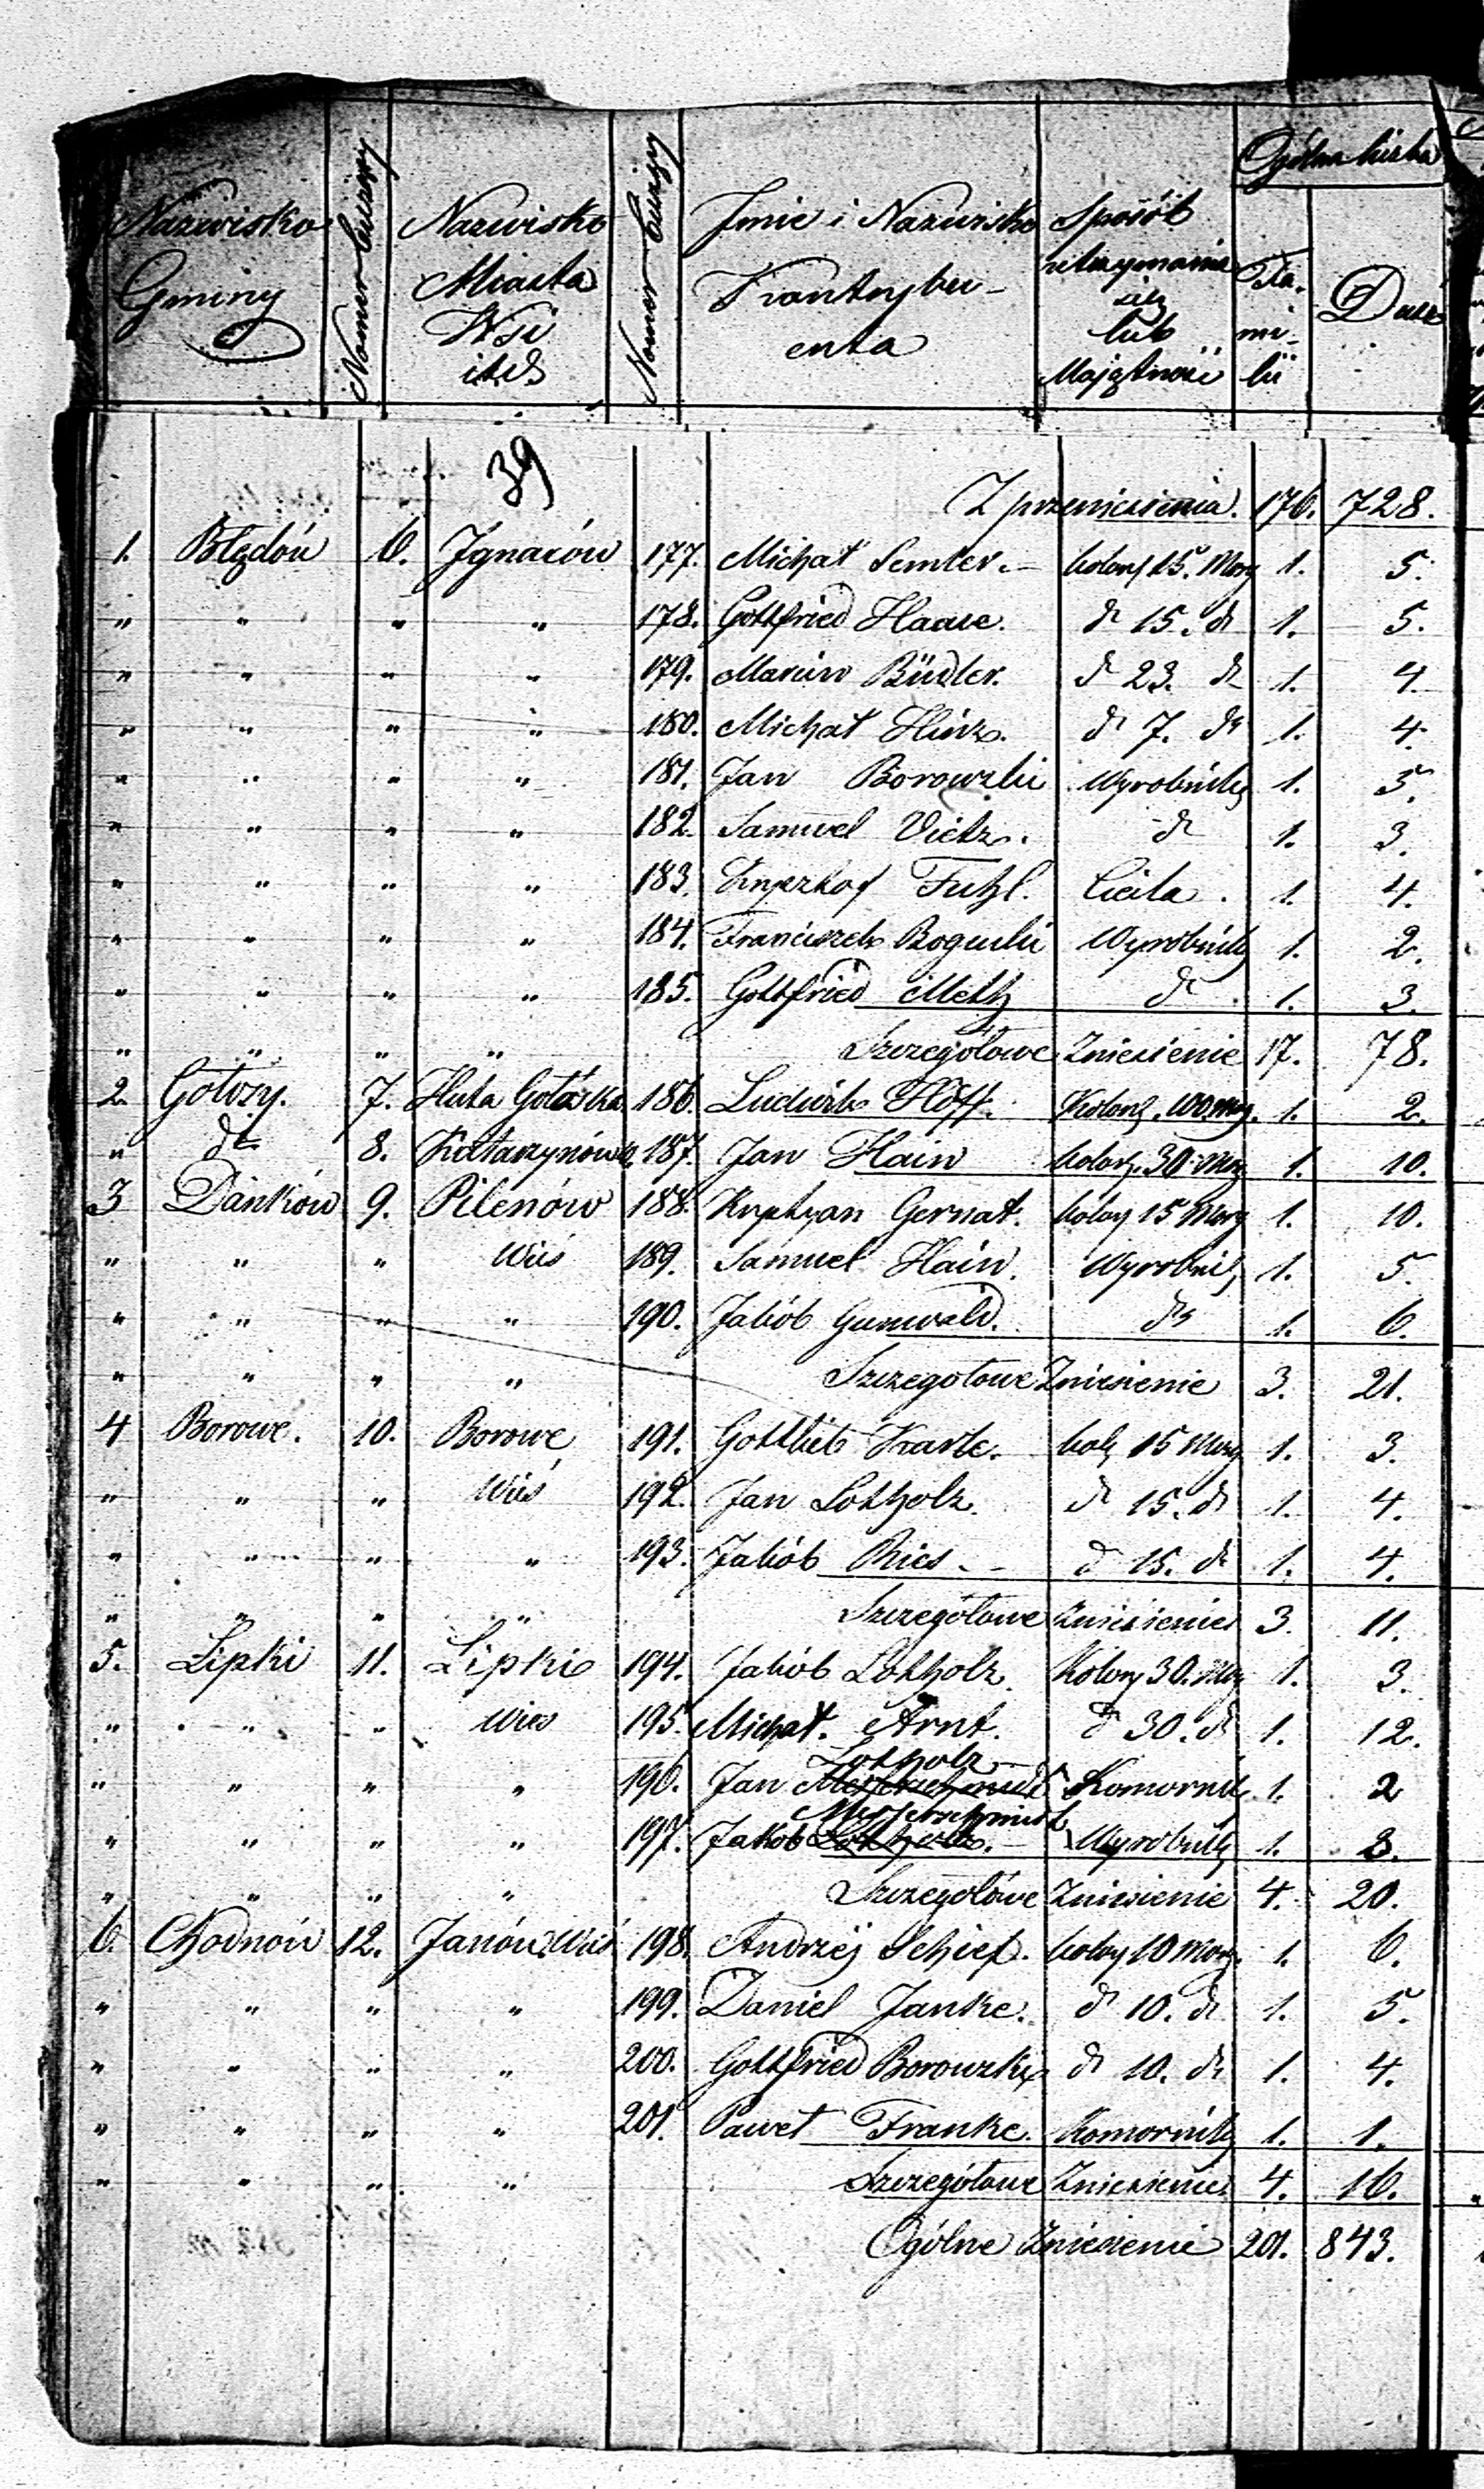 Nazwisko Gminy | Numer bieżący | Nazwisko Miasta Wsi itd | Numer bieżący | Jmie i Nazwisko Kontrybuenta | Sposób utrzymania się lub Majątność | Ogólna liczba Familii | Dusz
39
Z przeniesienia. 176. 728.
1. Błędów 6. Jgnaców 177. Michał Semler. – kolon 15. Morg 1. 5.
" " " " 178. Gottfried Haase. dt 15. dt 1. 5.
" " " " 179. Marcin Büdler. dt 23. dt 1. 4.
" " " " 180. Michał Hinz. dt 7. dt 1. 4.
" " " " 181. Jan Borowzki Wyrobnik 1. 5.
" " " " 182. Samuel Vietz. dt 1. 3.
" " " " 183. Krysztof 1. 4.
" " " " 184. Franciszek Bogucki Wyrobnik 1. 2.
" " " " 185. Gottfried Meth dt 1. 3.
" " " " Szczegółowe Zniesienie 17. 78.
2. Gołozy. 7. Huta Gołoska 186. Ludwik Hoff. Kolon. 100 Mg. 1. 2.
" dt 8. Katarzynów 187. Jan Hain kolon. 30 Mrg 1. 10.
3 Dańków 9. Pilenów 188. Krystyan Gernat. kolon 15 Morg 1. 10.
" " " Wieś 189. Samuel Hain. Wyrobnik 1. 5.
" " " " 190. Jakób Gumwald. dt 1. 6.
" " " " Szczegołowe Zniesienie 3. 21.
4 Borowe. 10. Borowe 191. Gottlieb Karle. kol. 15 Morg 1. 3.
" " " Wieś 192. Jan Lothholz. dt 15. dt 1. 4.
" " " " 193. Jakób Ries – – dt 15. dt 1. 4.
" " " " Szczegółowe Zniesienie 3. 11.
5. Lipki 11. Lipki 194. Jakób Lothholz. Kolon 30. Mrg 1. 3.
" " " Wieś 195. Michał. Arnt. dt 30. dt 1. 12.
Lothholz –
" " " " 196. Jan Messerschmidt Komornik 1. 2
Messerschmidt
" " " " 197. Jakób Lothholz. – Wyrobnik 1. 3.
" " " " Szczegołowe Zniesienie 4. 20.
6. Chodnów 12. Janów Wieś 198. Andrzéj Schief. kolon 10 Morg. 1. 6.
" " " " 199. Daniel Janke. dt 10. dt 1. 5.
" " " " 200. Gottfried Borowzki dt 10. dt 1. 4.
" " " " 201. Paweł Franke. Komornik 1. 1.
" " " " Szczegółowe Zniesienie 4. 16.
Ogólne Zniesienie 201. 843.